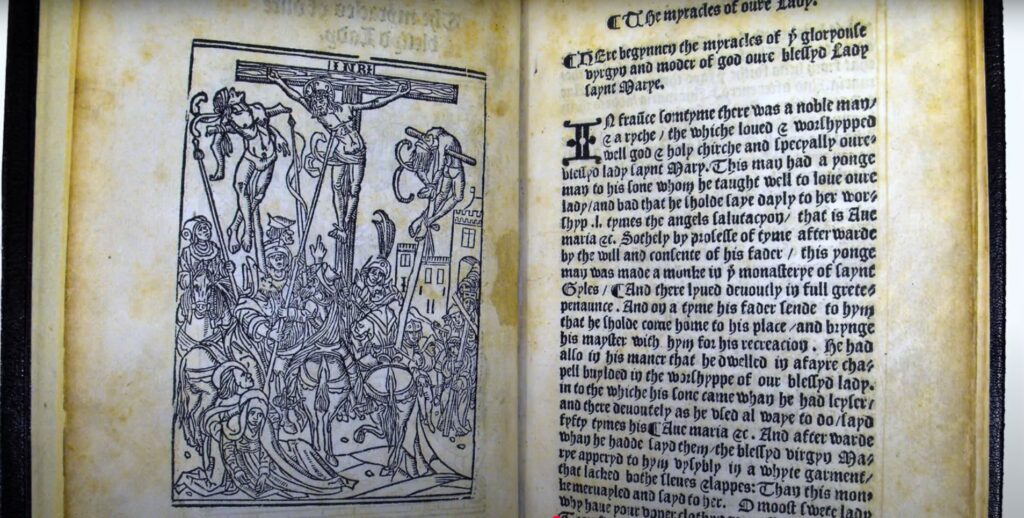 INRI
¶ The myracles of oure Lady.
¶ HEre begynnen the myracles of yͤ gloryouse
vyrgyn and moder of god oure blessyd Lady
saynt Marye.
IN frauce somtyme there was a noble man/
& a ryche / the whiche loued & worshypped
well god & holy chirche and specyally oure
blessyd lady saynt Mary. This man had a yonge
man to his sone whom he taught well to loue oure
lady/and bad that he sholde saye dayly to her wor-
shyp .l. tymes the angels salutacyon/ that is Aue
maria &c. Sothely by processe of tyme afterwarde
by the will and consente of his fader / this yonge
man was made a monke in yͤ monasterye of saynt
Gyles / ¶ And there lyued deuoutly in full grete
penaunce. And on a tyme his fader sende to hym
that he sholde come home to his place /and brynge
his mayster with hym for his recreacion. He had
also in his maner that he dwelled in afayre cha-
pell buylded in the worshyppe of our blessyd lady.
in to the whiche his sone came whan he had leyser/
and there deuoutely as he vsed al waye to do/sayd
fyfty tymes his ¶ Aue maria &c. And after warde
whan he hadde sayd them/the blessyd virgyn Ma-
rye apperyd to hym vysybly in a whyte garment/
that lacked bothe sleues & lappes: Than this mon-
ke meruayled and sayd to her. O moost swete lady
why haue your vpper